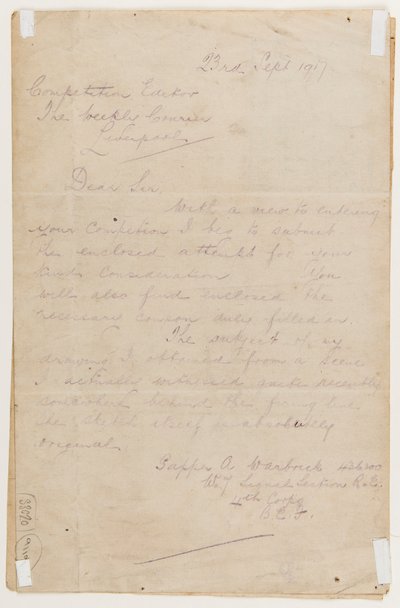 23rd Sept 1917
Competition Editor
The Weekly Courier
Liverpool
Dear Sir,
With a view to entering
your Competion I beg to submit
the enclosed attempt for your
kind consideration You
will also find enclosed the
necessary coupon duly filled in.
The subject of my
drawing I obtained from a scene
I actually witnessed quite recently
somewhere behind the firing line
the sketch itself is absolutely
original.
Sapper A Warbrick
Signal Section R.E.
4th Corps
B.E.F.